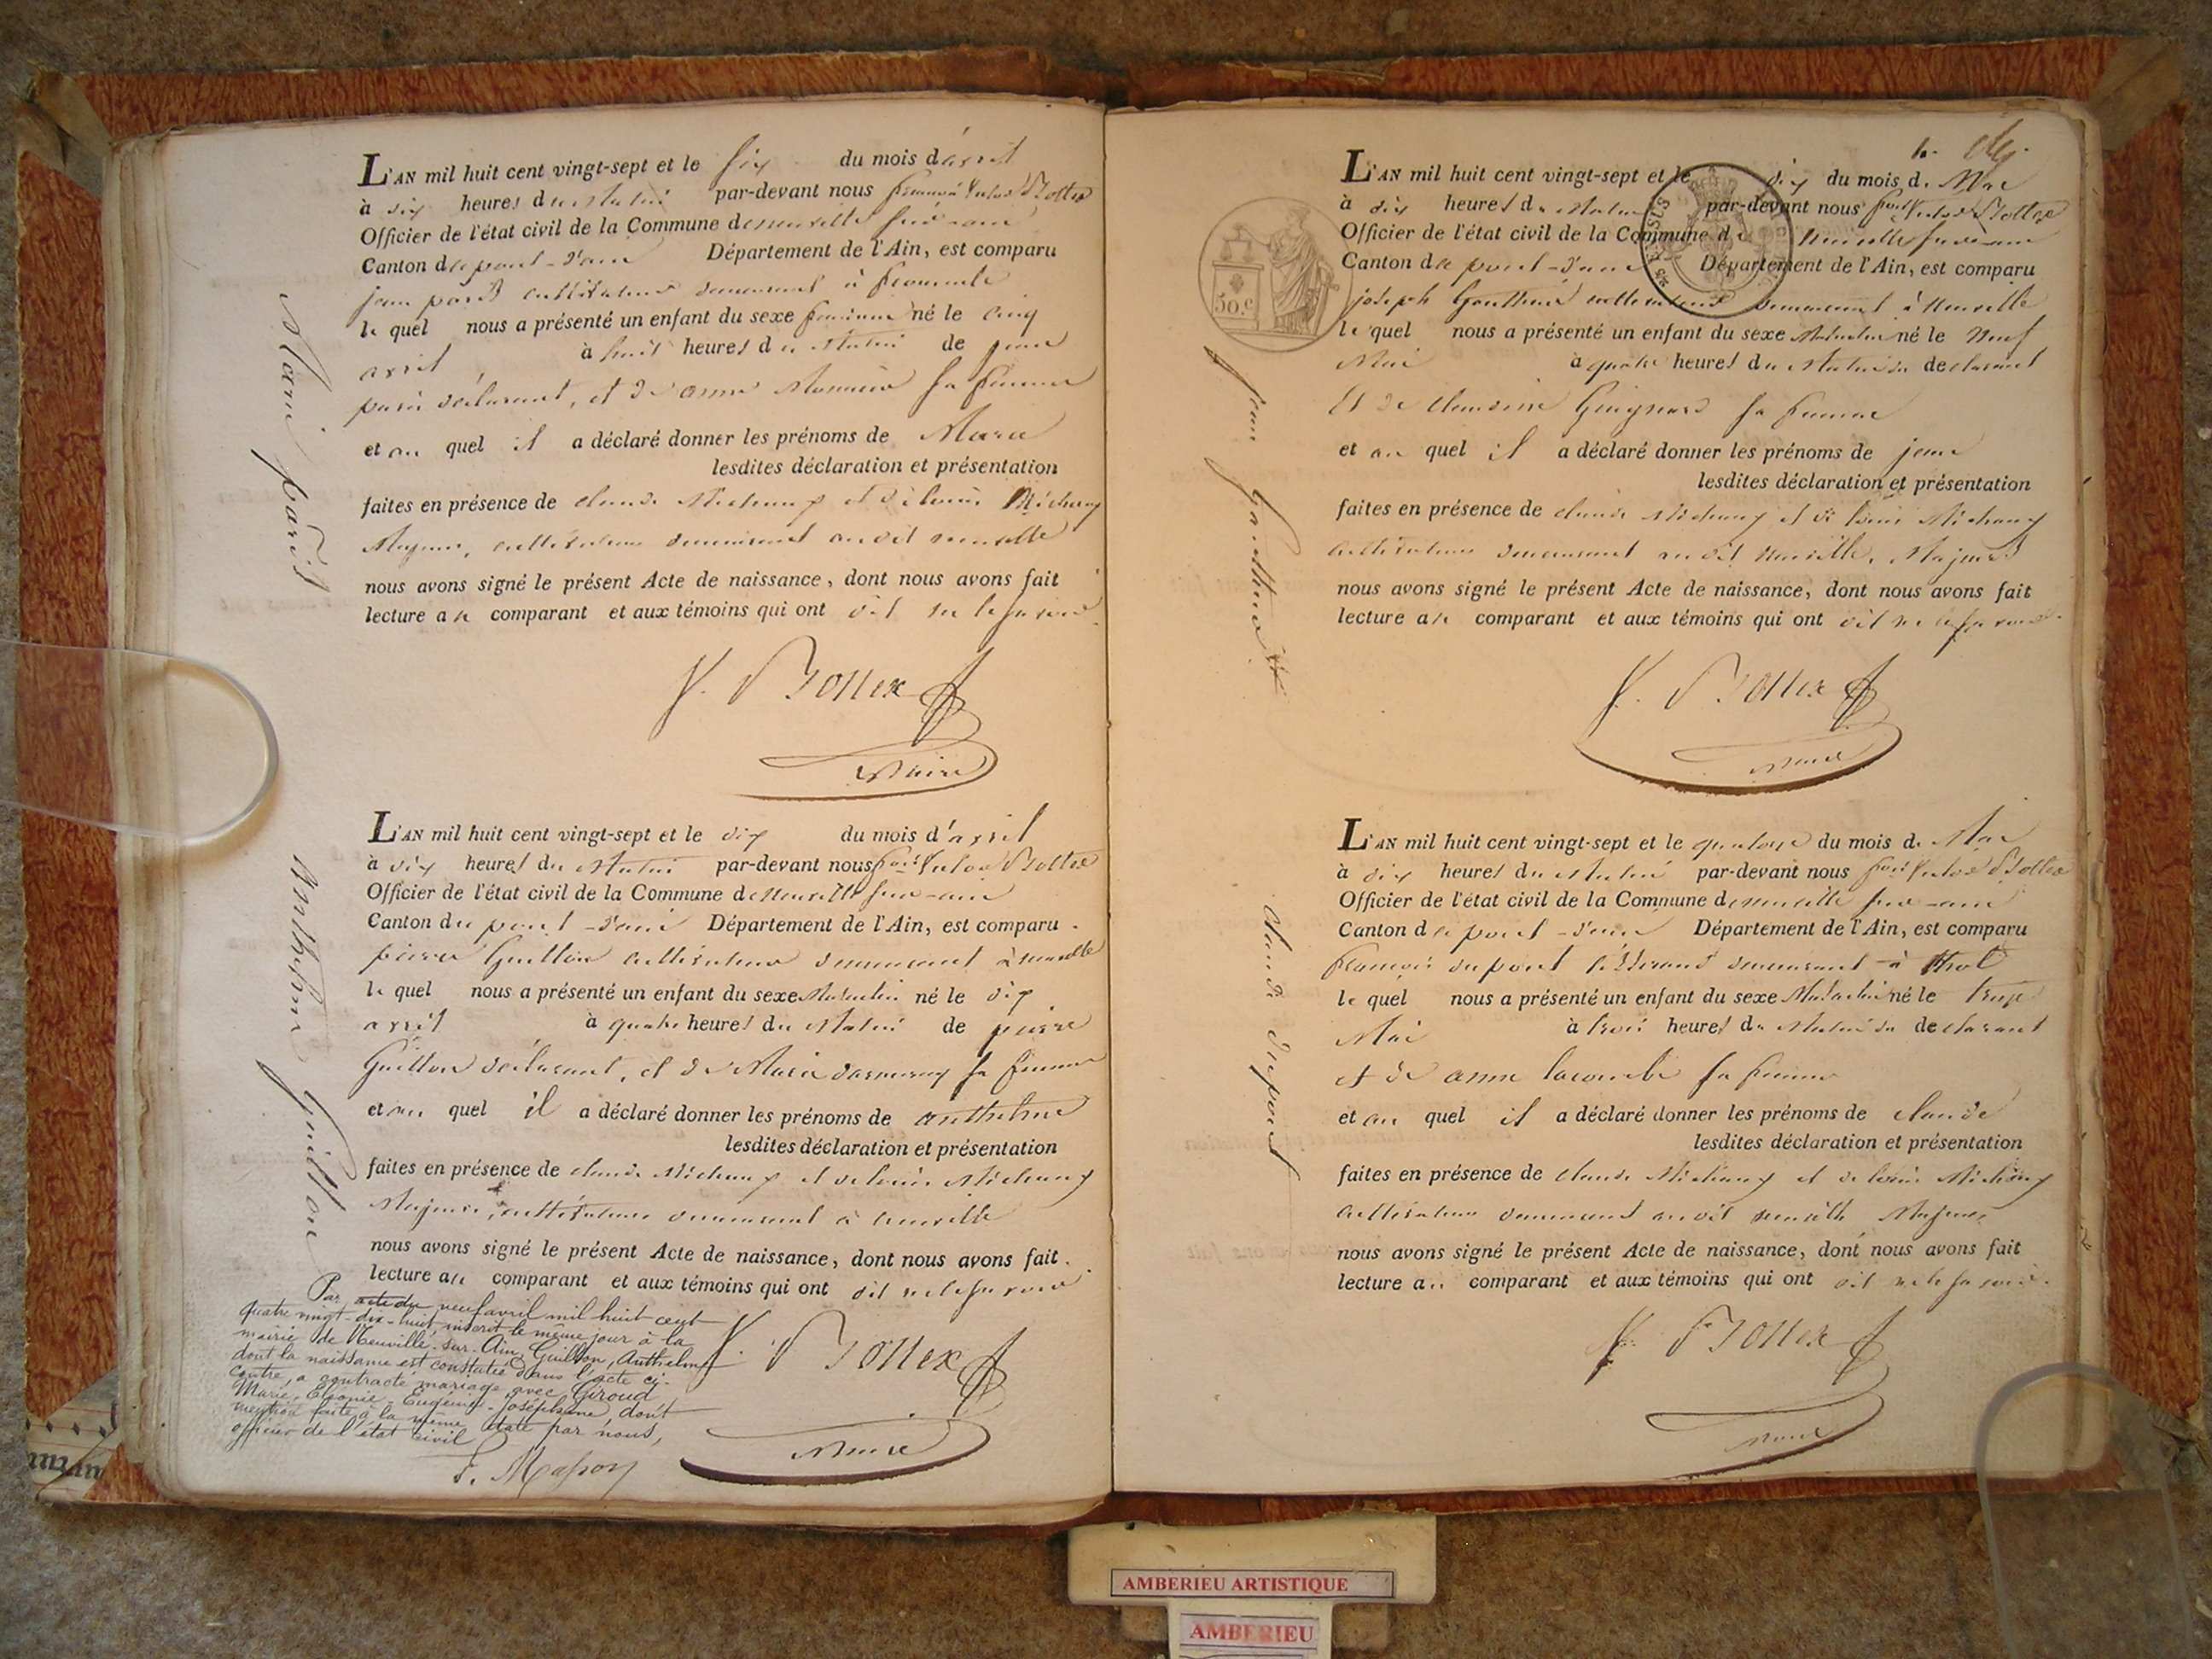 L'AN mil huit cent vingt-sept et le six du mois d'avril
à dix heures du Matin par-devant nous françois Victor Bottex
Officier de l'état civil de la Commune de neuville sur-ain
Canton de pont-d'ain Département de l'Ain, est comparu
jean paris cultivateur demeurant à
le quel nous a présenté un enfant du sexe féminin né le cinq
avril à huit heures du Matin de jean
paris déclarant, et de anne sa femme
et au quel il a déclaré donner les prénoms de Marie
lesdites déclaration et présentation
faites en présence de claude Michaux et de louis Michaux
Majeurs, cultivateurs demeurant au dit neuville
nous avons signé le présent Acte de naissance, dont nous avons fait
lecture au comparant et aux témoins qui ont dit ne le savoir
V. Bottex
Maire
Marie paris
L'AN mil huit cent vingt-sept et le dix du mois d'avril
à dix heures du Matin par-devant nous fçois Victor Bottex
Officier de l'état civil de la Commune de Neuville sur-ain
Canton du pont-d'ain Département de l'Ain, est comparu
pierre Guillon cultivateur demeurant à neuville
le quel nous a présenté un enfant du sexe Masculin né le dix
avril à quatre heures du Matin de pierre
Guillon déclarant, et de Marie sa femme
et au quel il a déclaré donner les prénoms de anthelme
lesdites déclaration et présentation
faites en présence de claude Michaux et de louis Michaux
Majeurs, cultivateurs demeurant à neuville
nous avons signé le présent Acte de naissance, dont nous avons fait
lecture au comparant et aux témoins qui ont dit ne le savoir
V. Bottex
Maire
Anthelme Guillon
Par acte du neuf avril mil huit cent
quatre vingt-dix-huit, inscrit le même jour à la
mairie de Neuville-sur-Ain, Guillon, Anthelme
dont la naissance est constatée dans l'acte ci-
contre, a contracté mariage avec Giroud
Marie, Eugénie-Joséphine, dont
mention faite à la même date par nous,
officier de l'état civil
L'AN mil huit cent vingt-sept et le dix du mois de Mai
à dix heures du Matin par-devant nous fçois Victor Bottex
Officier de l'état civil de la Commune de Neuville sur-ain
Canton de pont-d'ain Département de l'Ain, est comparu
joseph Gauthier cultivateur demeurant à Neuville
le quel nous a présenté un enfant du sexe Masculin né le Neuf
Mai à quatre heures du Matin du declarant
Et de claudine Guignard sa femme
et au quel il a déclaré donner les prénoms de jean
lesdites déclaration et présentation
faites en présence de claude Michaux et de louis Michaux
cultivateurs demeurant au dit Neuville, Majeurs
nous avons signé le présent Acte de naissance, dont nous avons fait
lecture au comparant et aux témoins qui ont dit ne le savoir
V. Bottex
Maire
50.c
jean Gauthier
L'AN mil huit cent vingt-sept et le quatorze du mois de Mai
à dix heures du Matin par-devant nous fçois Victor Bottex
Officier de l'état civil de la Commune de neuville sur-ain
Canton de pont-d'ain Département de l'Ain, est comparu
françois dupont demeurant à
le quel nous a présenté un enfant du sexe Masculin né le treize
Mai à trois heures du Matin du declarant
et de anne lacombe sa femme
et au quel il a déclaré donner les prénoms de claude
lesdites déclaration et présentation
faites en présence de claude Michaux et de louis Michaux
cultivateurs demeurant au dit neuville Majeurs
nous avons signé le présent Acte de naissance, dont nous avons fait
lecture au comparant et aux témoins qui ont dit ne le savoir.
V. Bottex
Maire
claude dupont
AMBERIEU ARTISTIQUE
AMBERIEU